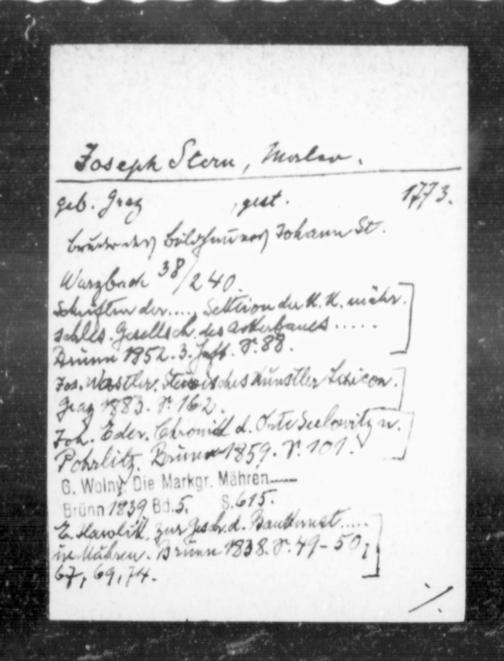 Joseph Stern, Maler.
geb. Graz , gest. 1773.
bruder des Bildhauers Johann St.
Wurzbach 38/240.
Schriften der...., Sektion der K. K. mähr.
schles. Gesellsch. des Ackerbaues .....
Brünn 1852. 3. Heft. S. 88.
Jos. Wastler, Steirisches Künstler Lexicon.
Graz 1883. S. 162.
Joh. Eder. Chronik d. Orte Seelowitz u.
Pohrlitz. Brünn 1859. S. 101.
G. Wolny, Die Markgr. Mähren
Brünn 1839 Bd. 5. S. 615.
E. Hawlik, zur Gesch. d. Baukunst.....
in Mähren. Brünn 1838. S. 49-50,
67, 69, 74.